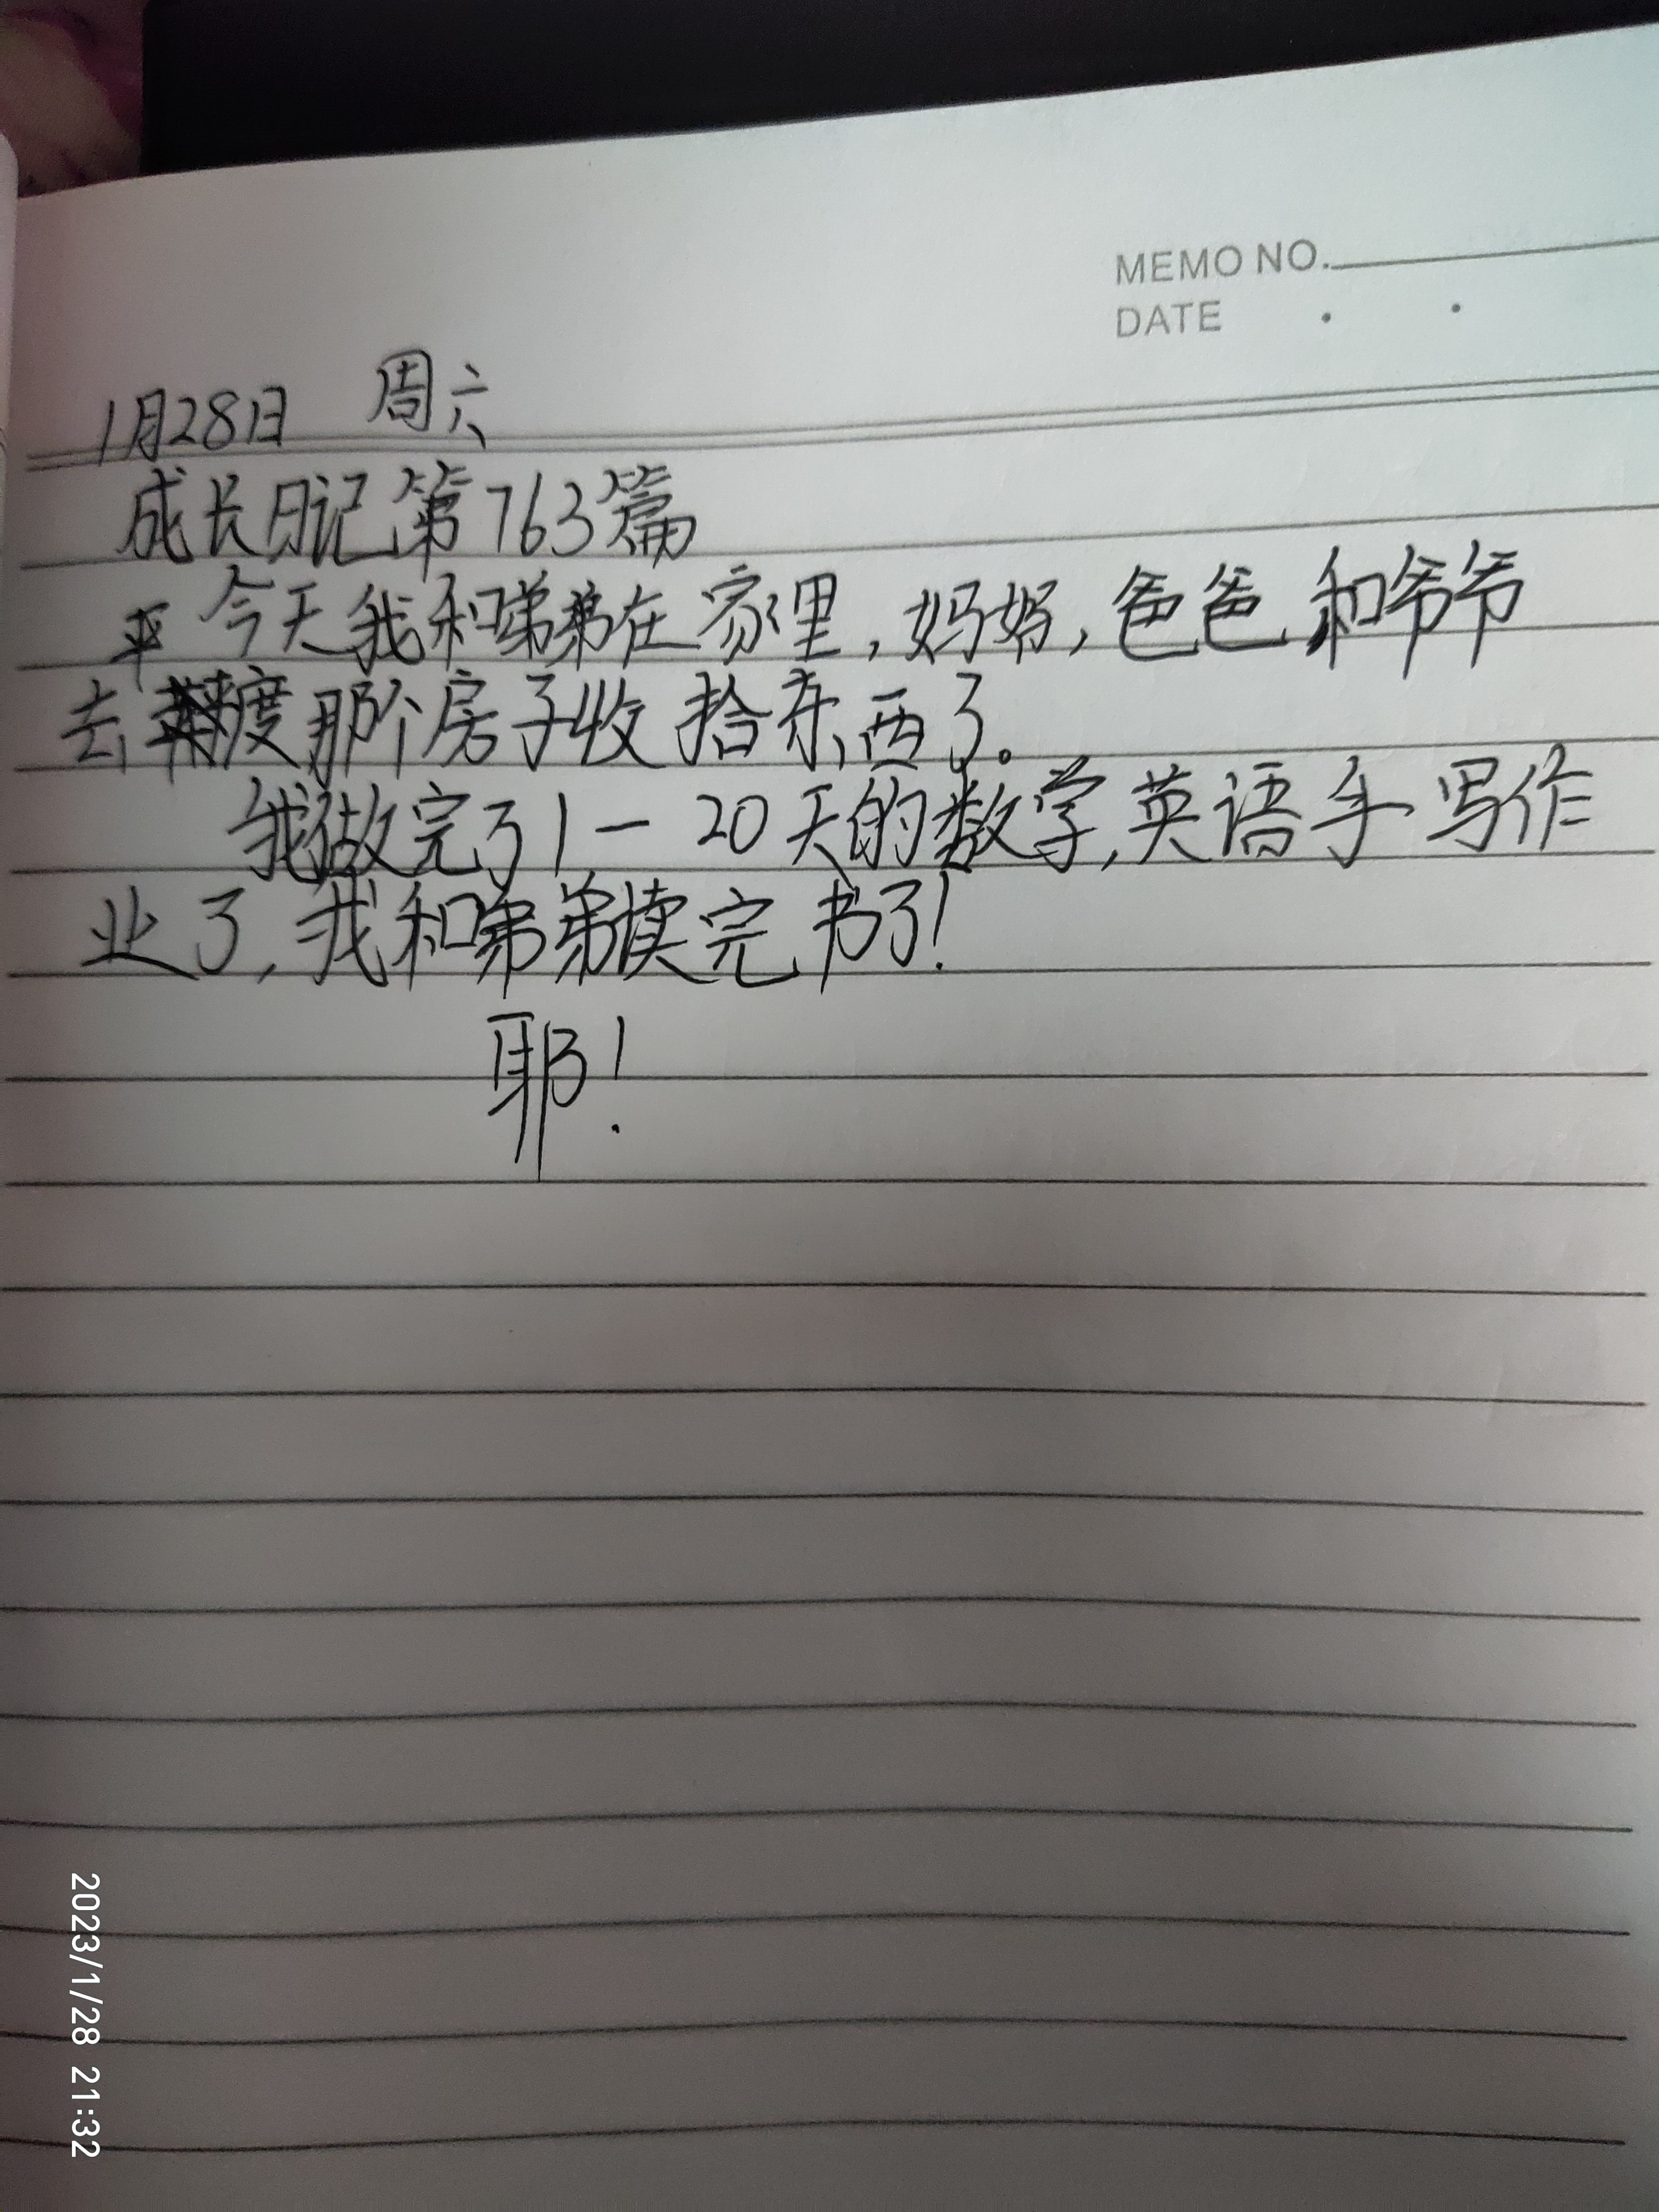 MEMO NO.
DATE . .
1月28日 周六
成长日记第763篇
今天我和弟弟在家里,妈妈,爸爸和爷爷
去平度那个房子收拾东西了。
我做完了1—20天的数学,英语手写作
业了,我和弟弟读完书了!
耶!
2023/1/28 21:32